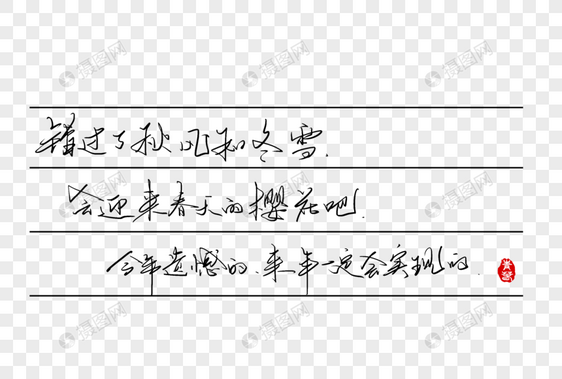 错过了秋风和冬雪.
会迎来春天的樱花吧.
今年遗憾的.来年一定会实现的.
摄图网